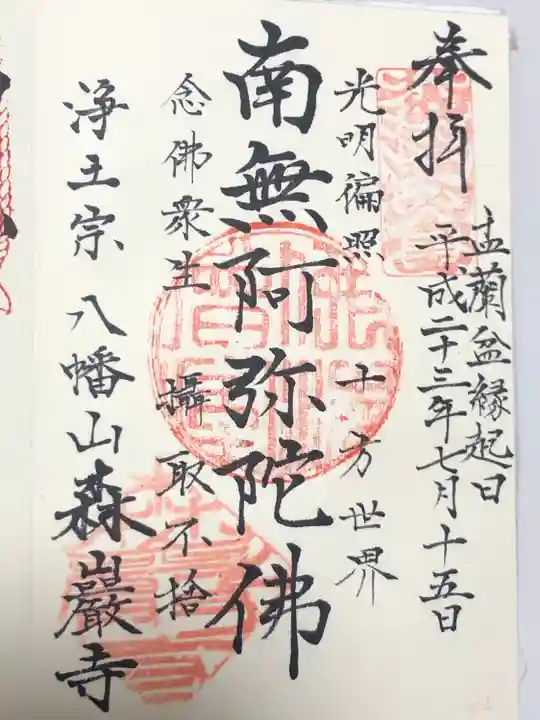 奉拝
盂蘭盆縁起日
平成二十三年七月十五日
光明徧照 十方世界
南無阿弥陀佛
念佛衆生 攝取不捨
浄土宗 八幡山森巖寺